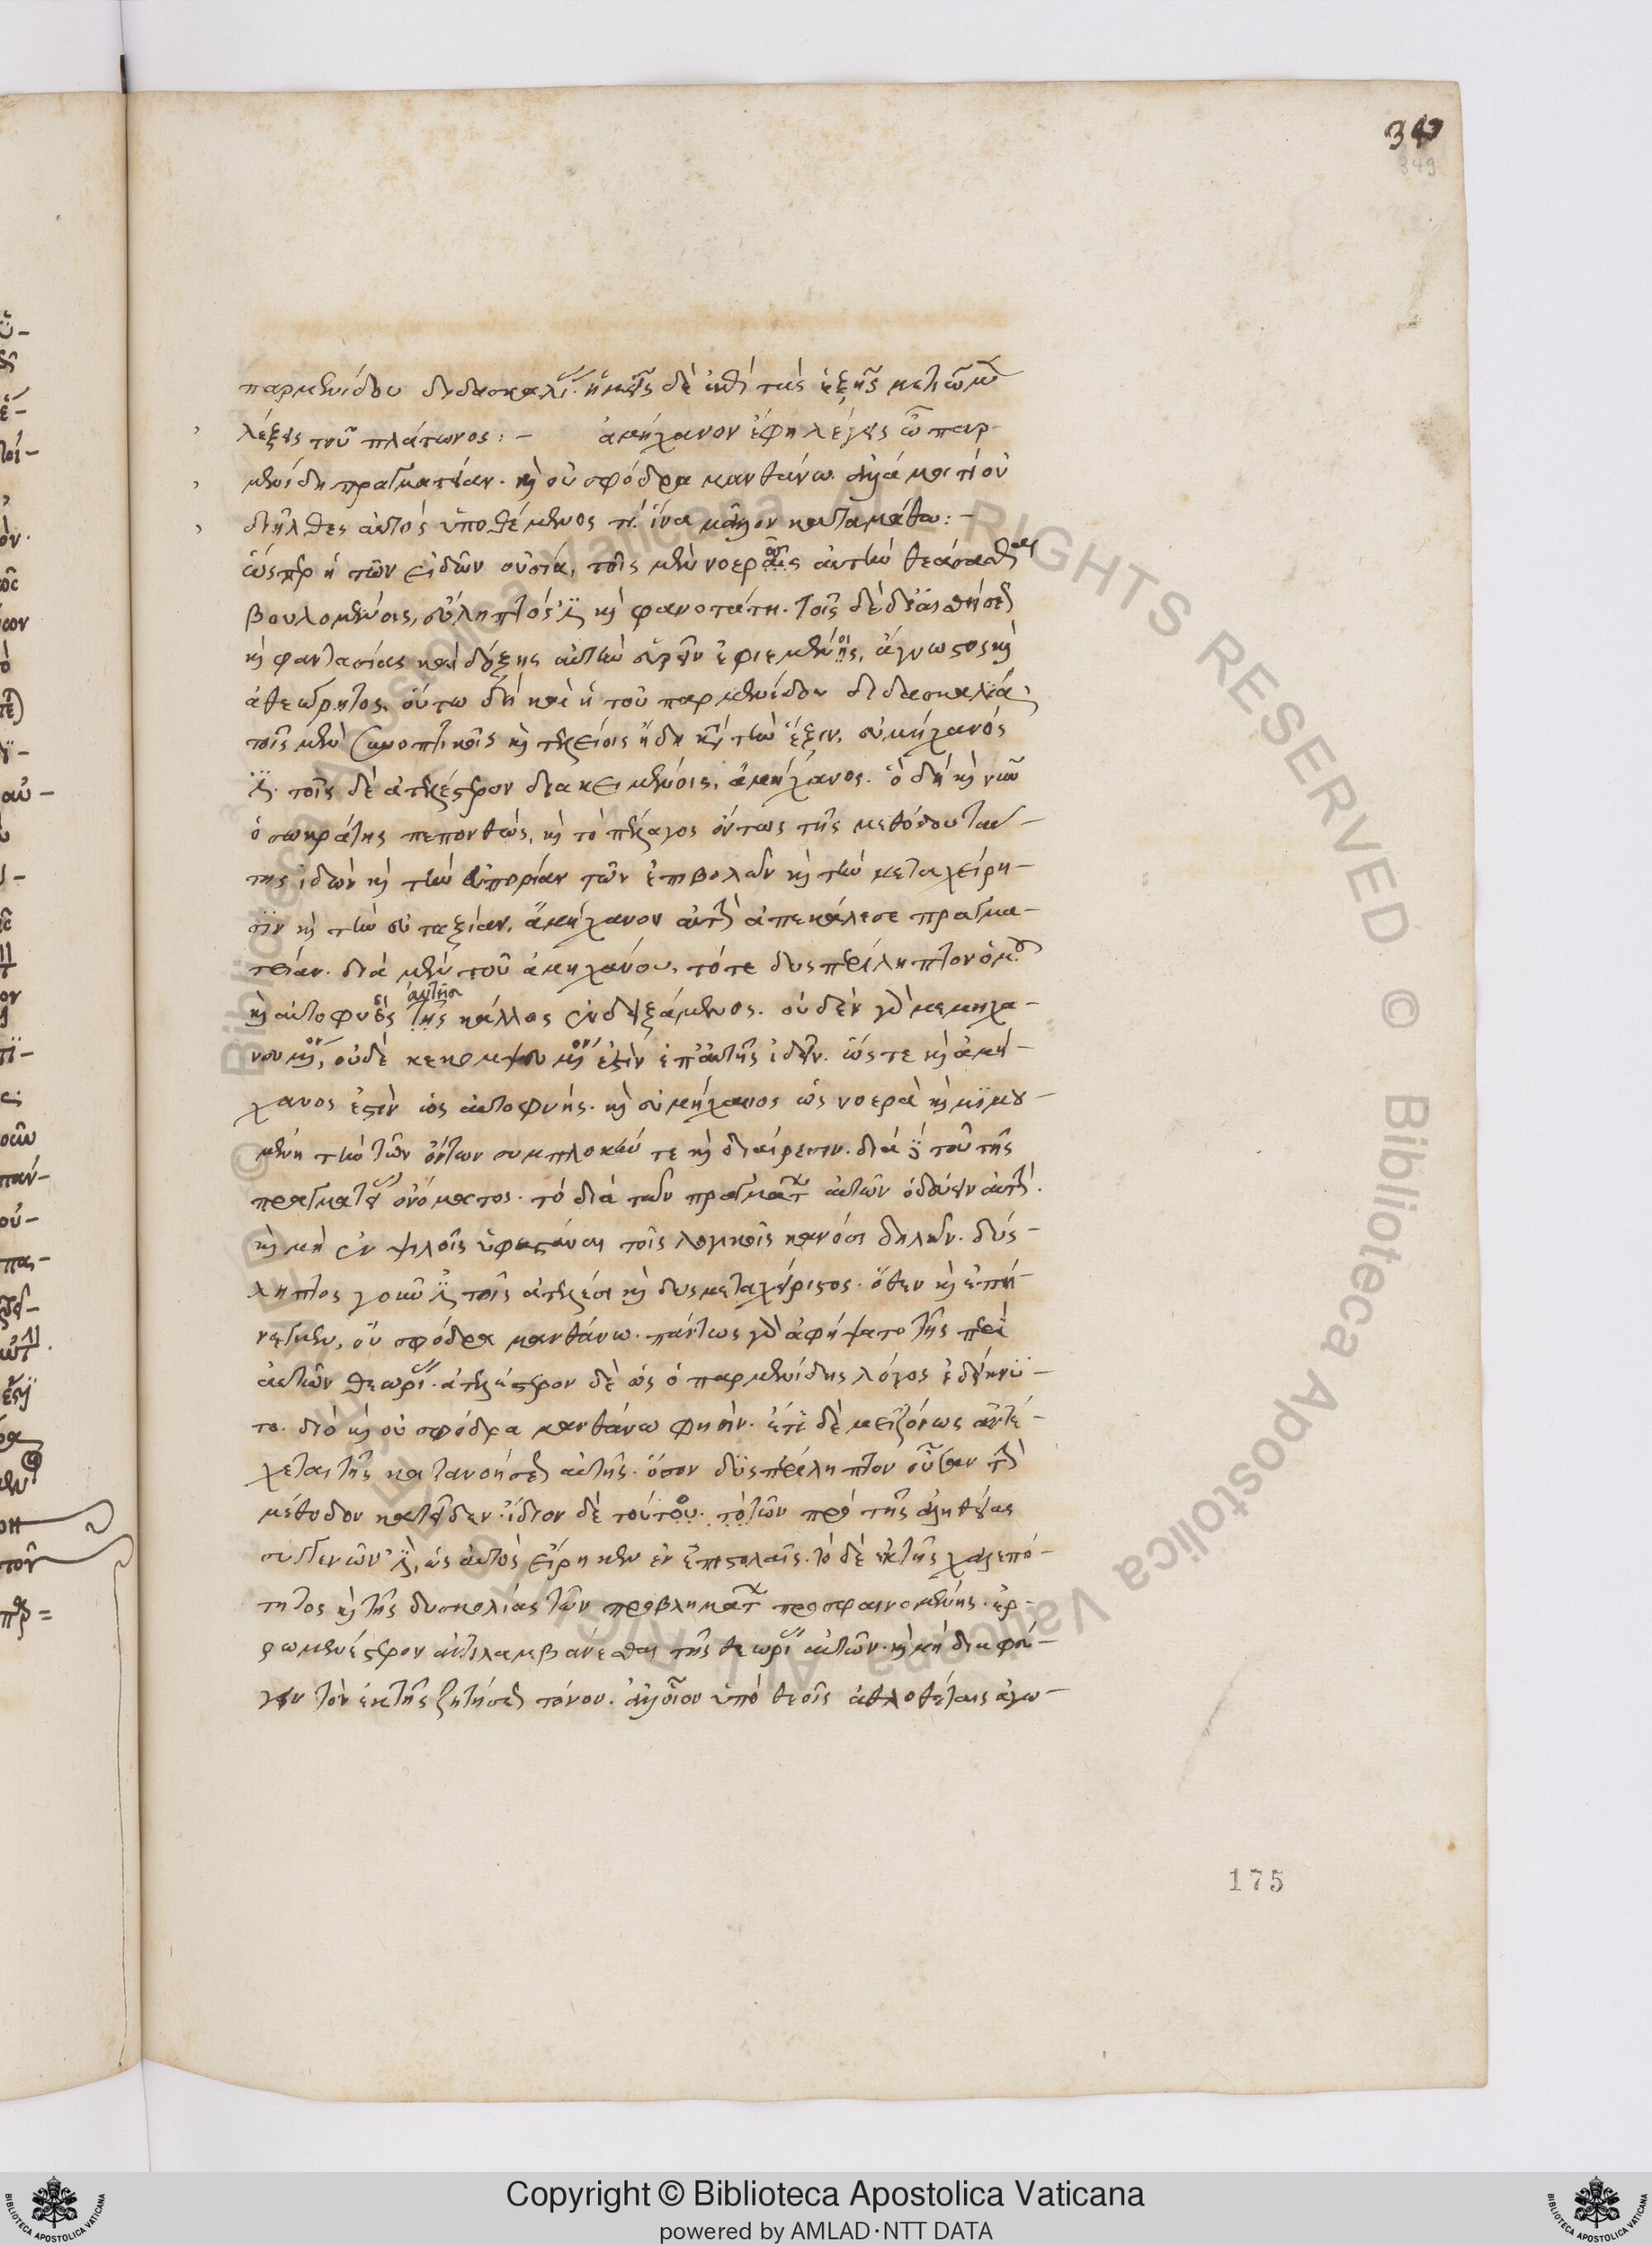 349
349
παρμενίδου διδασκαλί. ἡμεῖς δὲ ἐπὶ τὰς ἑξῆς μετίωμεν
λέξεις τοῦ πλάτωνος :– ἀμήχανον ἔφη λέγεις ὦ παρ-
μενίδη πραγματείαν. καὶ οὐ σφόδρα μανθάνω. ἀλλά μοι τί οὐ
διῆλθες αὐτὸς ὑποθέμενός τι. ἵνα μᾶλλον καταμάθω :–
ὥσπερ ἡ τῶν εἰδῶν οὐσία, τοῖς μὲν νοερῶς αὐτὴν θεάσασθαι
βουλομένοις, εὔληπτός ἐστι καὶ φανοτάτη. τοῖς δὲ δι' αἰσθήσεως
καὶ φαντασίας καὶ δόξης αὐτὴν εὑρεῖν ἐφιεμένοις, ἄγνωστος καὶ
ἀθεώρητος. οὕτω δὴ καὶ ἡ τοῦ παρμενίδου διδασκαλία,
τοῖς μὲν συνοπτικοῖς καὶ τελείοις ἤδη κατὰ τὴν ἕξιν, εὐμήχανός
ἐστι. τοῖς δὲ ἀτελέστερον διακειμένοις, ἀμήχανος. ὃ δὴ καὶ νῦν
ὁ σωκράτης πεπονθὼς, καὶ τὸ πέλαγος ὄντως τῆς μεθόδου ταύ-
της ἰδὼν καὶ τὴν εὐπορίαν τῶν ἐπιβολῶν καὶ τὴν μεταχείρη-
σιν καὶ τὴν εὐταξίαν, ἀμήχανον αὐτὴν ἀπεκάλεσε πραγμα-
τείαν. διὰ μὲν τοῦ ἀμηχάνου, τό τε δυσπερίληπτον ὁμοῦ
καὶ αὐτοφυὲς αὐτῆς τῆς κάλλος ἐνδειξάμενος. οὐδὲν γὰρ μεμηχα-
νημένον, οὐδὲ κεκομψευμένον ἐστὶν ἐπ' αὐτῆς ἰδεῖν. ὥστε καὶ ἀμή-
χανος ἐστὶν ὡς αὐτοφυής. καὶ εὐμήχανος ὡς νοερὰ καὶ μιμου-
μένη τὴν τῶν ὄντων συμπλοκήν τε καὶ διαίρεσιν. διὰ δὲ τοῦ τῆς
πραγματεί ὀνόματος. τὸ διὰ τῶν πραγμάτ αὐτῶν ὁδεύειν αὐτὴν.
καὶ μὴ ἐν ψιλοῖς ὑφεστάναι τοῖς λογικοῖς κανόσι δηλῶν. δύσ-
ληπτος γοῦν ἐστι τοῖς ἀτελέσι καὶ δυσμεταχείριστος. ὅθεν καὶ ἐπή-
νεγκεν, οὐ σφόδρα μανθάνω. πάντως γὰρ ἀφήψατο τῆς περὶ
αὐτῶν θεωρί. ἀτελέστερον δὲ ὡς ὁ παρμενίδης λόγος ἐδείκνυ-
το. διὸ καὶ οὐ σφόδρα μανθάνω φησὶν. ἔτι δὲ μειζόνως ἀντέ-
χεται τῆς κατανοήσεως αὐτῆς. ὅσον δυσπερίληπτον οὖσαν τὴν
μέθοδον κατεῖδεν. ἴδιον δὲ τούτου. τὸ τῶν πρὸ τῆς ἀληθείας
συγγενῶν ἐστι, ὡς αὐτὸς εἴρηκεν ἐν ἐπιστολαῖς. τὸ δὲ ἐκ τῆς χαλεπό-
τητος καὶ τῆς δυσκολίας τῶν προβλημάτ προσφαινομένης. ἐρ-
ρωμενέστερον ἀντιλαμβάνεσθαι τῆς θεωρί αὐτῶν. καὶ μὴ διαφεύ-
γειν τὸν ἐκ τῆς ζητήσεως πόνον. ἀλλ' οἷον ὑπὸ θεοῖς ἀθλοθέταις ἀγω-
175
Copyright © Biblioteca Apostolica Vaticana
powered by AMLAD·NTT DATA